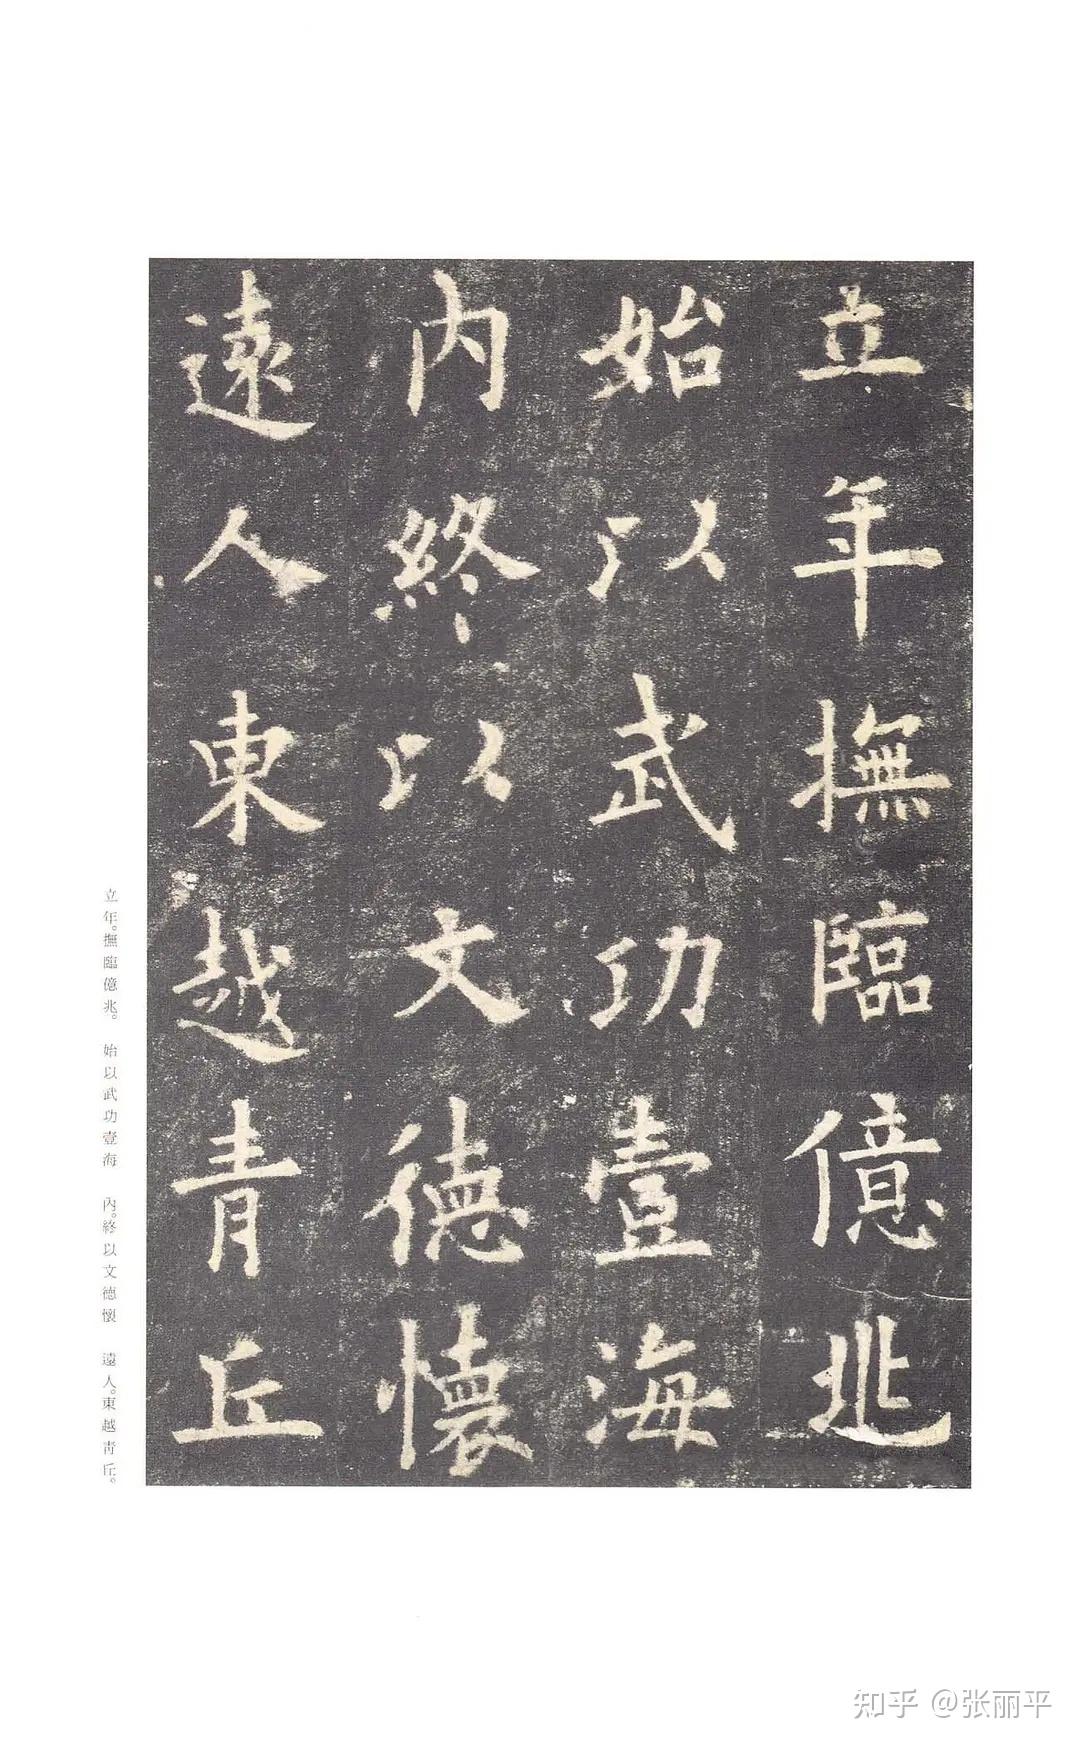 立年撫臨億兆
始以武功壹海
內終以文德懷
遠人東越青丘
立年。撫臨億兆。　始以武功壹海　內。終以文德懷　遠人。東越青丘。
知乎 @张丽平